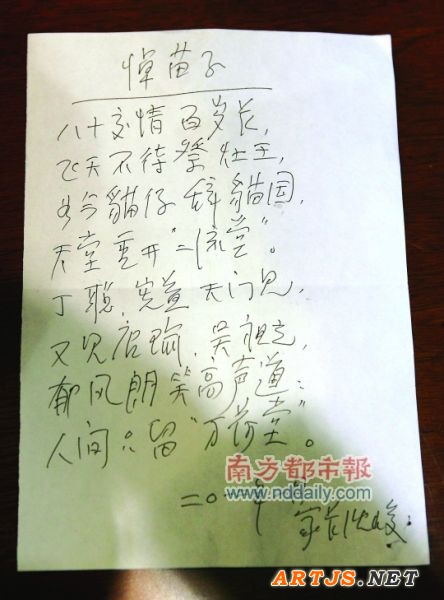 悼苗子
八十交情百岁长，
飞天不待祭灶王，
如今貓仔辞貓国，
天堂重开“二流堂”。
丁聪，宪益天门见，
又见启瑜，吴祖光，
郁风朗笑高声道：
人间只留“万荷堂”。
南方都市報
www.nddaily.com
二〇一
ARTJS.NET